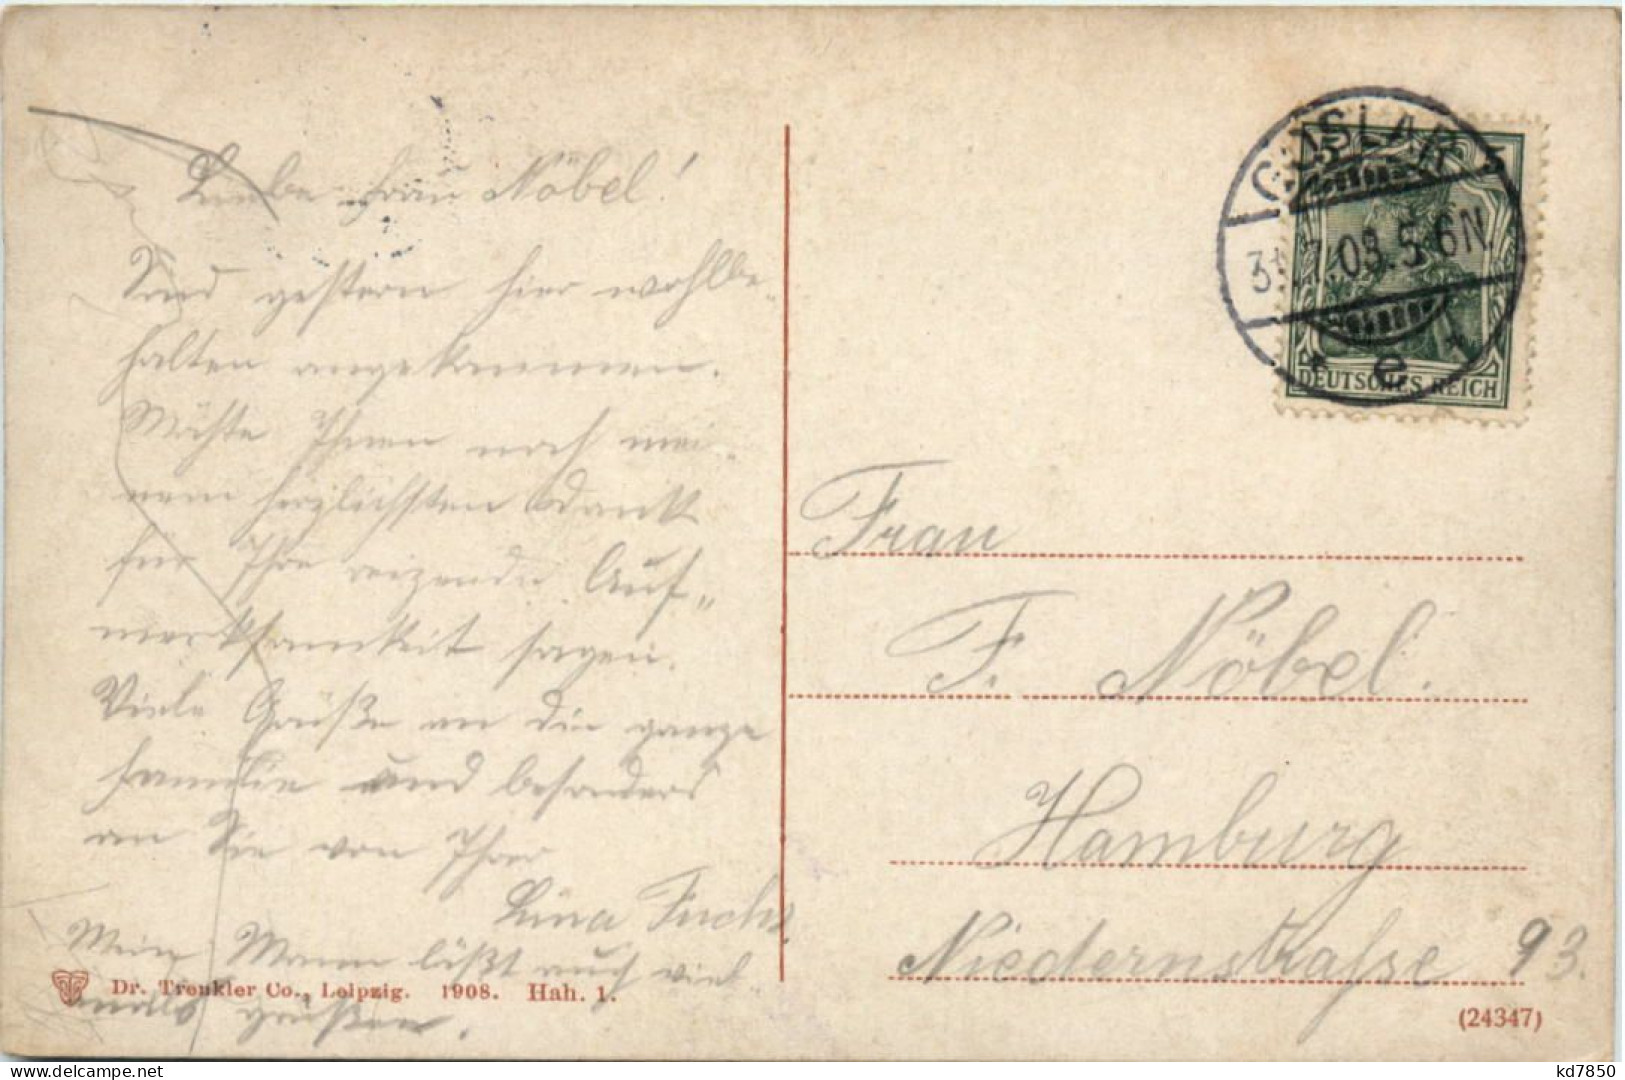 Liebe Frau Nöbel!
Sind gestern hier wohlbe-
halten angekommen.
Möchte Ihnen noch mei-
nen herzlichsten Dank
für Ihre reizende Auf-
merksamkeit sagen.
Viele Grüße an die ganze
Familie und besonders
an Sie von Ihrer
Lina Fuchs.
Mein Mann läßt auch viel-
mals grüßen.
Dr. Trenkler Co., Leipzig. 1908. Hah. 1.
GOSLAR
31.7.08. 5-6N.
* e *
DEUTSCHES REICH
Frau
F. Nöbel.
Hamburg
Niedernstraße 93.
(24347)
kd7850
delcampe.net